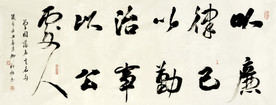 以廉
律己
以勤
治事
以公
處人